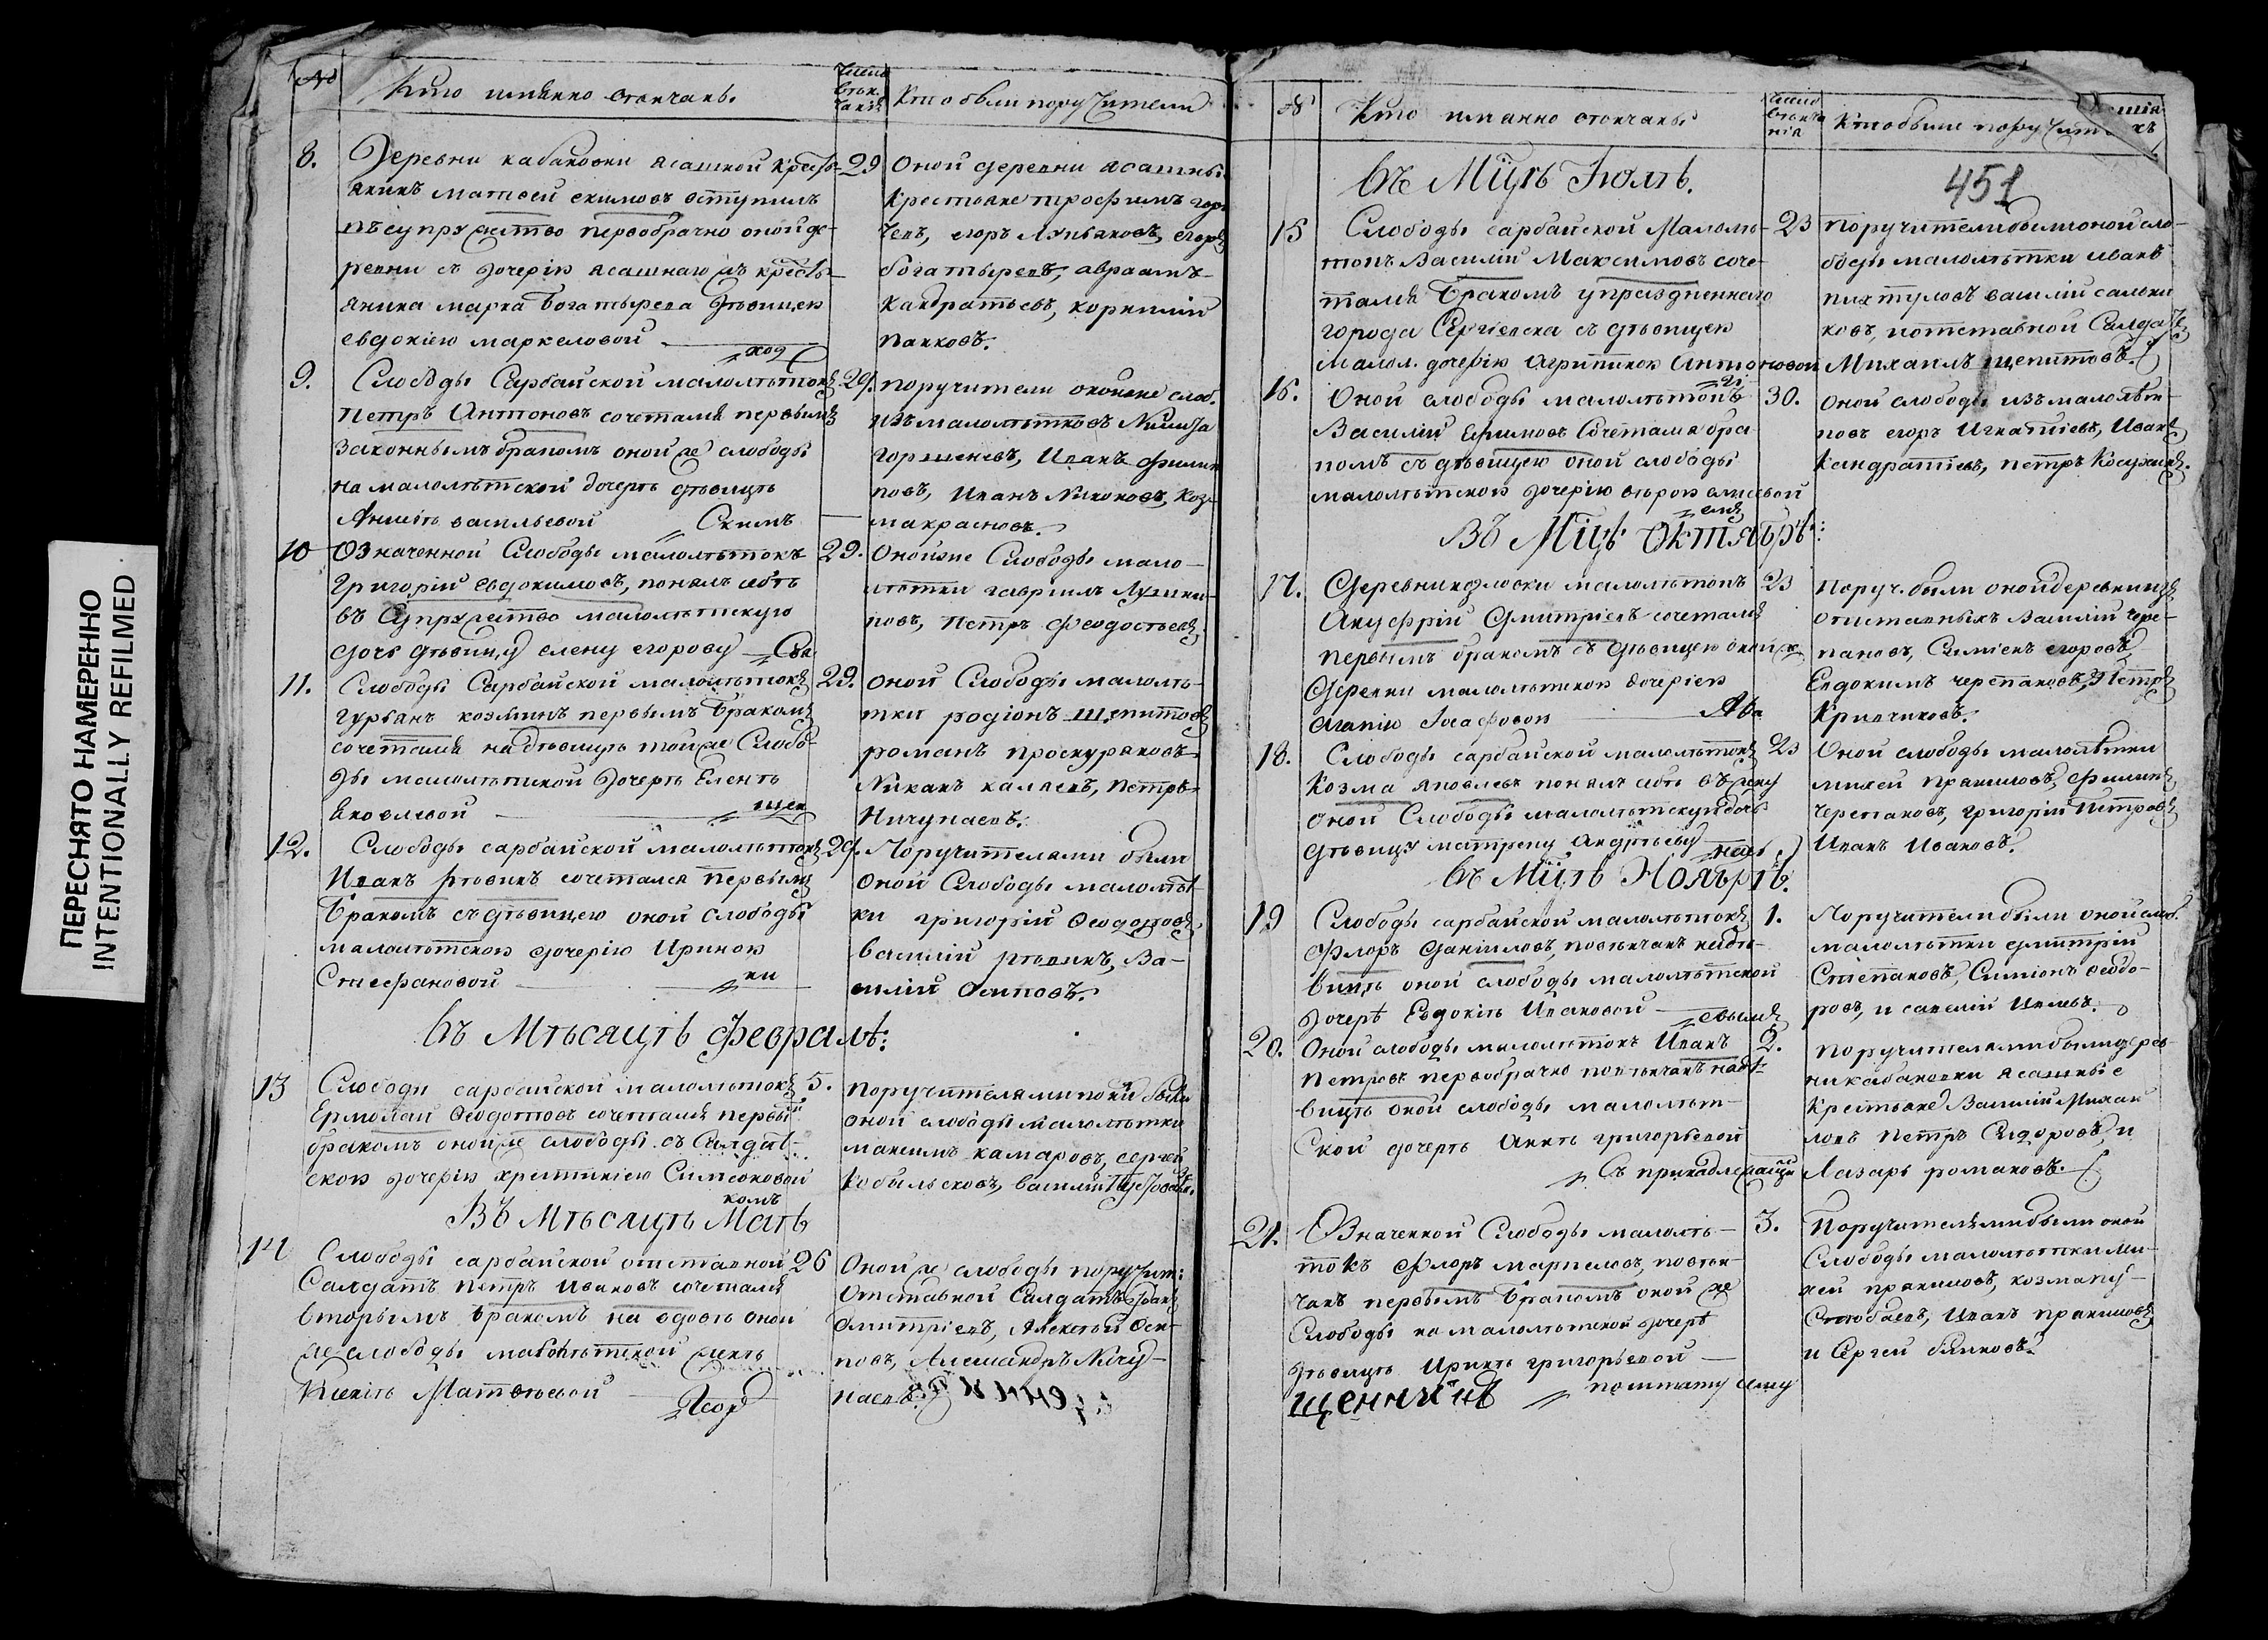 ПЕРЕСНЯТО НАМЕРЕННО
INTENTIONALLY REFILMED
№
Кто имянно венчанъ.
Кто были поручители
8. Деревни кабановки ясашной кресть- 29
янинъ матвей екимовъ вступилъ
въ супружество первобрачно оной де-
ревни съ дочерію ясашнаго крестья-
янина марка богатырева девицею
евдокіею маркеловой
Оной деревни ясашны
Крестьяне трофимъ
егоръ Лупьяновъ, егоръ
богатыревъ, авраамъ
кандратьевъ, корнилій
панковъ.
9. Слободы Сарбайской малолѣтокъ 29.
Петръ Антоновъ сочетался первымъ
законнымъ бракомъ оной же слободы
на малолѣтской дочерѣ дѣвицѣ
васильевой Скимъ
поручители оной же слоб.
изъ малолѣтковъ Никита
горшеневъ, Иванъ филип
повъ, Иванъ Никоновъ, Коз-
ма красновъ.
10 Означенной Слободы малолѣтокъ 29.
Григорій евдокимовъ, понялъ себѣ
въ Супружество малолѣтскую
дочь дѣвицу елену егорову
Оной же Слободы мало-
лѣтки гаврилъ
новъ, Петръ Феодосѣевъ,
11. Слободы Сарбайской малолѣтокъ 29.
гурьянъ козминъ первымъ бракомъ
сочетался на дѣвицѣ той же Слобо-
ды малолѣтской дочерѣ Еленѣ
Яковлевой
Оной Слободы малолѣ-
тки родіонъ Щепитовъ
романъ проскуряковъ
Петръ
Ничупаевъ.
12. Слободы сарбайской малолѣтокъ 29.
Иванъ рѣвинъ сочетался Первымъ
бракомъ съ дѣвицею оной слободы
малолѣтской дочерію Ириною
Стефановой
Поручителями были
Оной Слободы малолѣт-
ки григорій Феодоровъ,
василій рѣвинъ, Ва-
силій Осиповъ.
Въ Мѣсяцѣ Февралѣ:
13 Слободы сарбайской малолѣтокъ 5.
Ермолай Феодотовъ сочетался первы
бракомъ оной же слободы съ Салдат-
скою дочерію христиніею Симеоновой
поручителями по них были
оной слободы малолѣтки
максимъ камаровъ, сергей
кобыльсковъ, василій
Въ Мѣсяцѣ Маѣ
14 Слободы сарбайской отставной 26
Салдатъ Петръ Ивановъ сочетался
вторымъ бракомъ на вдовѣ оной
же слободы малолѣтской женѣ
Ксеніѣ Матвѣевой
Оной же слободы поручит:
Отставной Салдатъ Иванъ
Дмитріевъ, Алексѣй Оси-
повъ, Александръ Ничу-
паевъ.
№
Кто имянно венчанъ
Кто были поручит
451
Въ Мцѣ Іюлѣ.
15 Слободы сарбайской Малолѣ- 23
токъ Василій Максимовъ соче-
тался бракомъ упраздненнаго
города Сергіевска съ дѣвицею
малол. дочерію Агрипиною Антоновой
Поручители были оной сло-
боды малолѣтки иванъ
пихтуловъ василій сальни
ковъ, и отставной Салдатъ
Михаилъ щепитовъ.
16. Оной слободы малолѣтокъ 30.
Василій Ефимовъ Сочетался бра
комъ съ дѣвицею оной слободы
малолѣтской дочерію
Оной слободы изъ малолѣт-
ковъ егоръ Игнатіевъ, Иванъ
Кандратіевъ, петръ
Въ Мцѣ Октябрѣ:
17. Деревни козловки малолѣтокъ 23
Ануфрій Дмитріевъ сочетался
первымъ бракомъ съ дѣвицею оной же
Деревни малолѣтской дочеріею
Поруч. были оной деревни изъ
отставныхъ Василій Чере-
пановъ, Симіонъ егоровъ
Евдокимъ черепановъ, Петръ
Кривчиковъ.
18. Слободы сарбайской малолѣтокъ 23
Козма яковлевъ понялъ себѣ въ жену
оной Слободы малолѣтскую дочь
дѣвицу матрену Андрѣеву
Оной слободы малолѣтки
михей пранишовъ, филипъ
Черепановъ, григорій Петровъ
Иванъ Ивановъ.
Въ Мцѣ Ноябрѣ.
19 Слободы сарбайской малолѣтокъ 1.
Флоръ Даниловъ, повѣнчанъ на дѣ-
вицѣ оной слободы малолѣтской
дочерѣ Евдокіѣ Ивановой
Поручители были оной слоб.
малолѣтки дмитрій
Степановъ, Симіонъ Феодо-
ровъ, и савелій
20. Оной слободы малолѣтокъ Иванъ 2.
Петровъ первобрачно повѣнчанъ на дѣ-
вицѣ оной слободы малолѣт-
ской дочерѣ Аннѣ григорьевой
Поручителями были дерев-
ни кабановки ясашные
крестьяне Василій Михаи
ловъ Петръ Сидоровъ, и
Лазарь романовъ.
21. Означенной Слободы малолѣ- 3.
токъ Флоръ маркеловъ, повѣн-
чанъ первымъ бракомъ оной же
Слободы на малолѣтской дочерѣ
дѣвицѣ Иринѣ григорьевой
Поручителями были оной
Слободы малолѣтки Ми-
хей пранишовъ, козма
Иванъ пранишовъ
и Сергей быковъ.
щенникъ